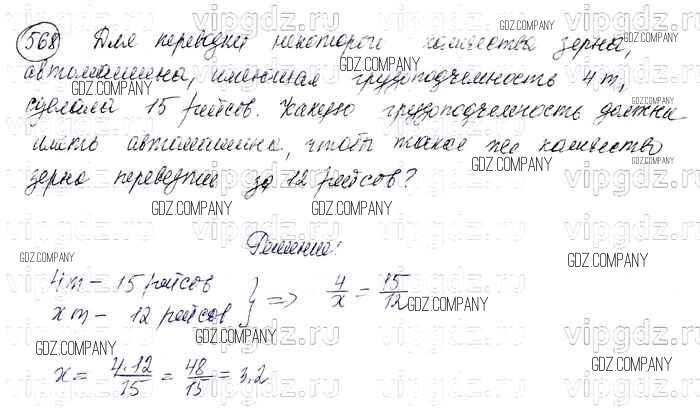 568 Для перевозки некоторого количества зерна,
автомашина, имеющая грузоподъемность 4 т,
сделала 15 рейсов. Какую грузоподъемность должна
иметь автомашина, чтобы такое же количество
зерна перевезти за 12 рейсов?
Решение:
4 т – 15 рейсов
x т – 12 рейсов } => 4/x = 15/12
x = 4·12/15 = 48/15 = 3,2
GDZ.COMPANY
vipgdz.ru